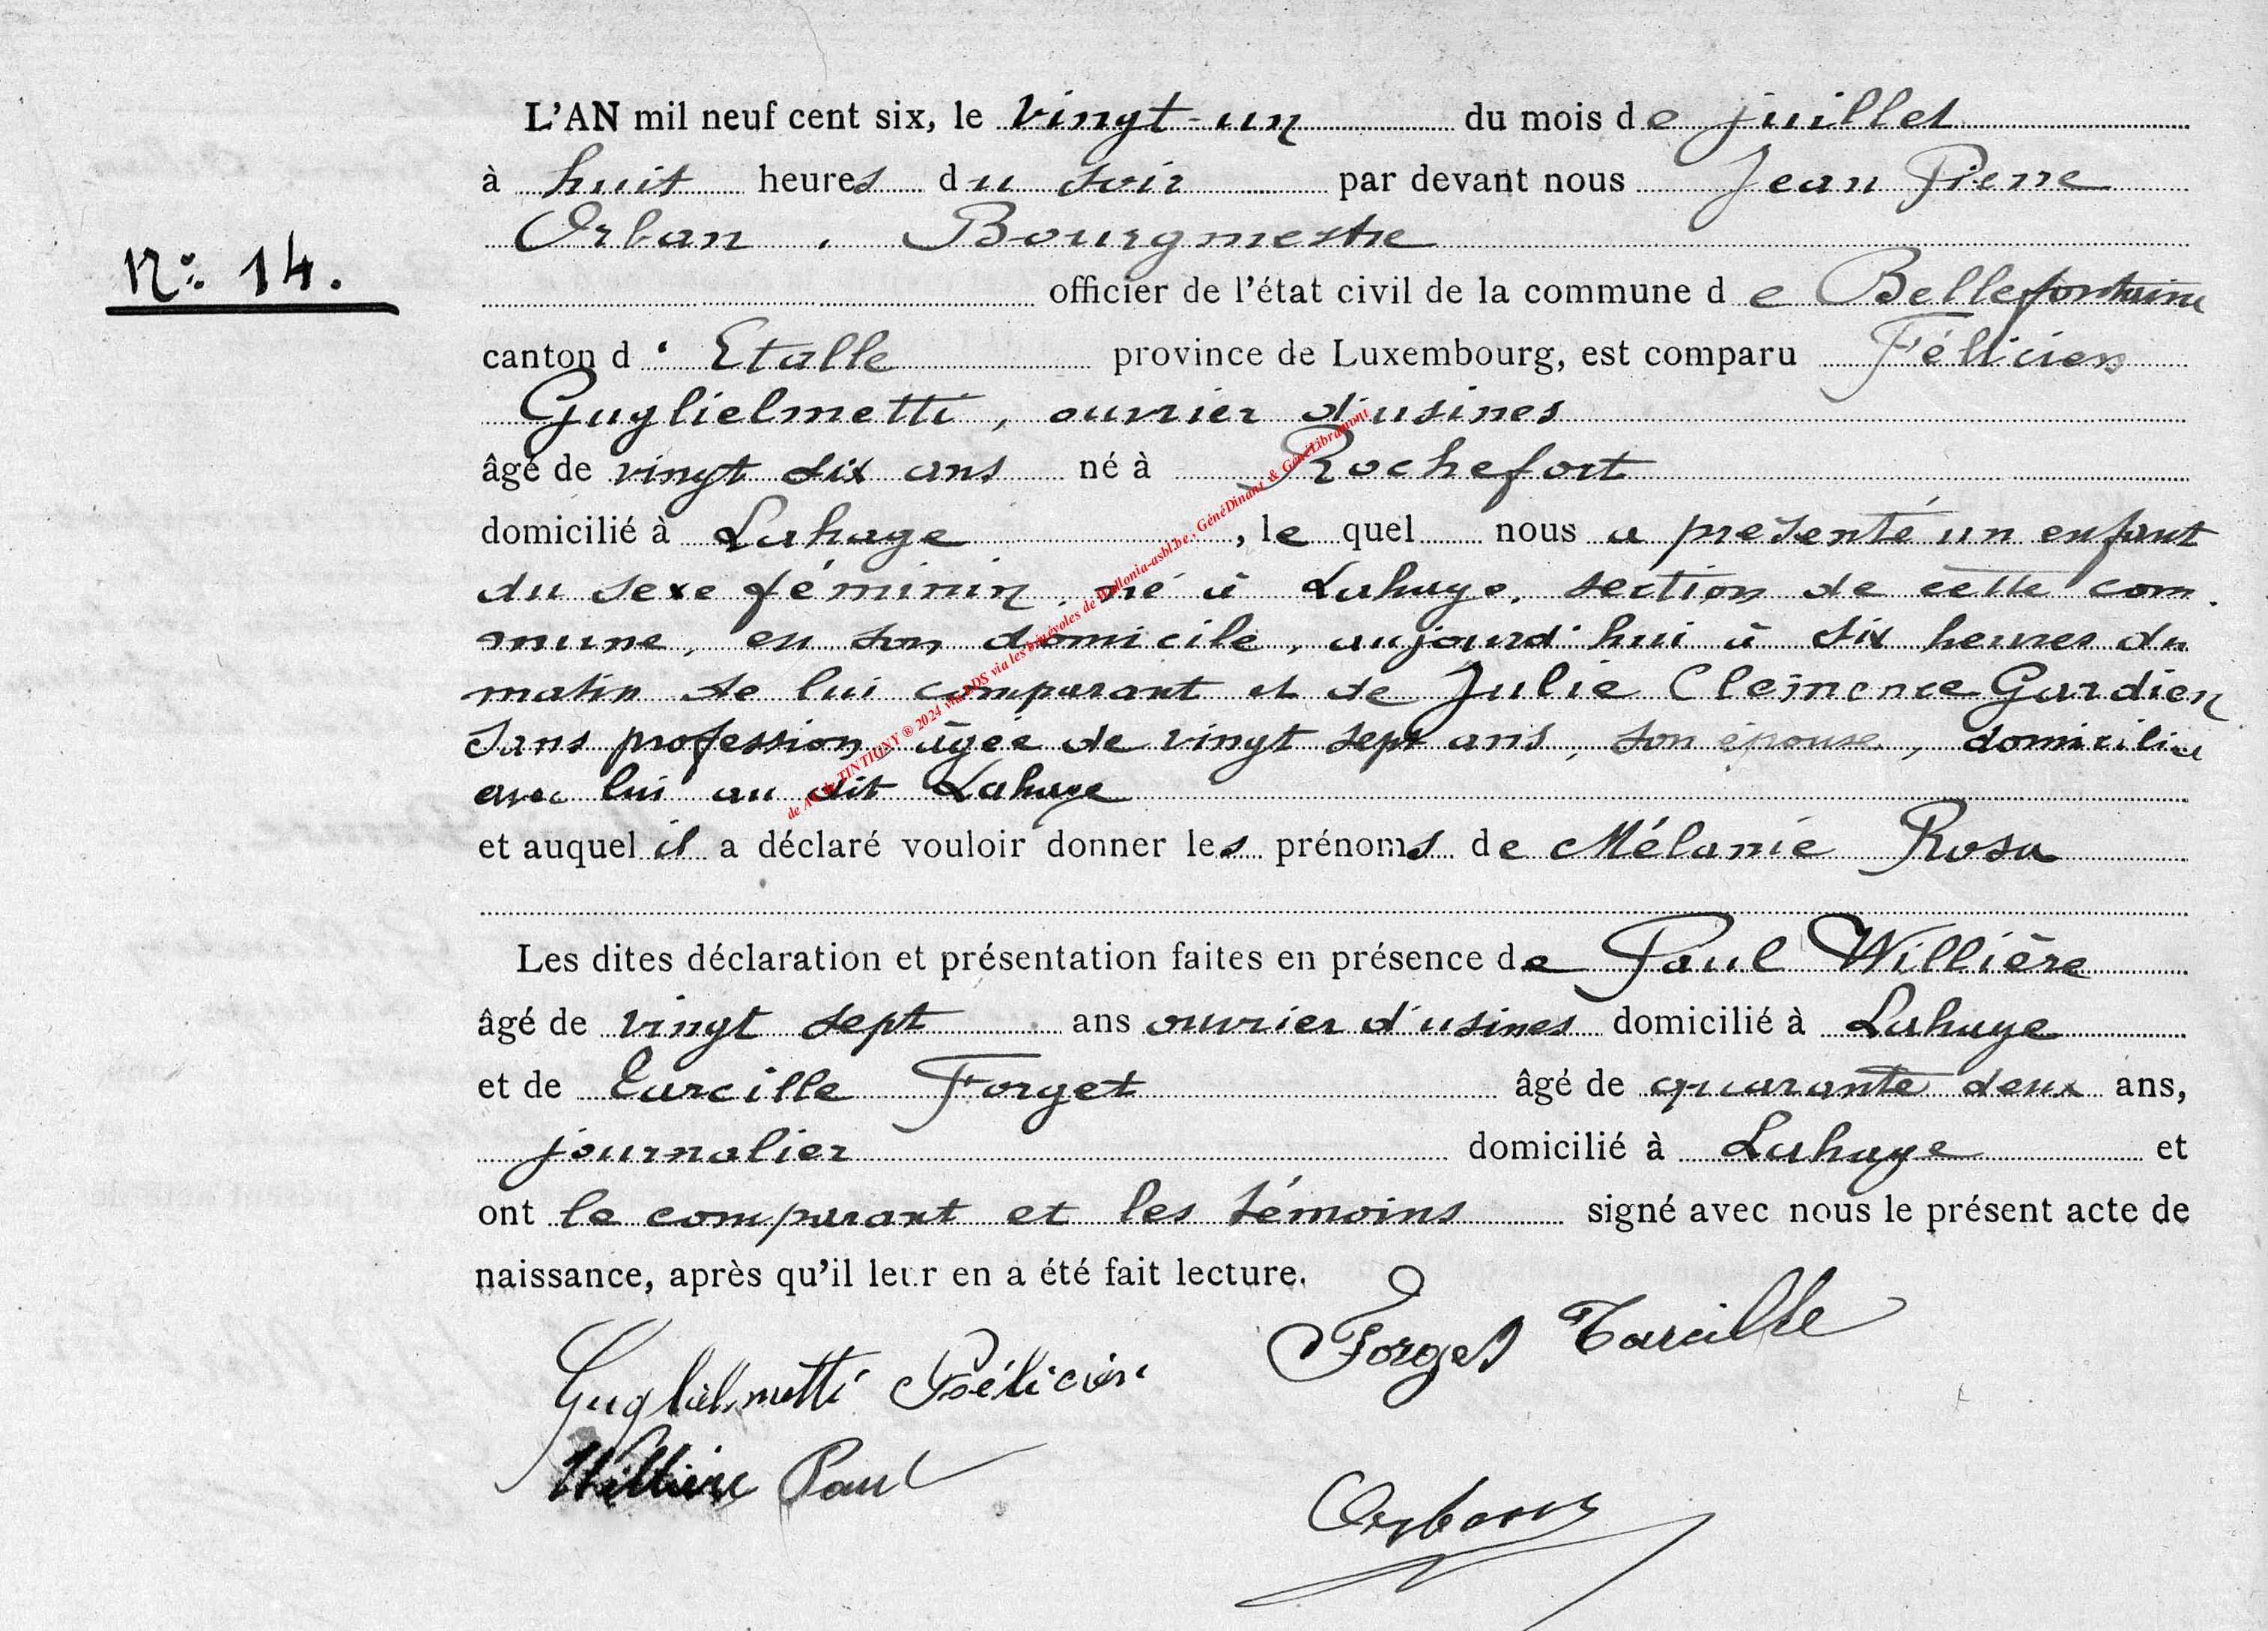 L'AN mil neuf cent six, le vingt-un du mois de juillet
à huit heures du soir par devant nous Jean Pierre
Orban, Bourgmestre
N°: 14.
officier de l'état civil de la commune de Bellefontaine
canton d'Etalle province de Luxembourg, est comparu Félicien
Guglielmetti, ouvrier d'usines
âgé de vingt six ans né à Rochefort
domicilié à Lahage, le quel nous a présenté un enfant
du sexe féminin, né à Lahage, section de cette com
mune, en son domicile, aujourd'hui à six heures du
matin de lui comparant et de Julie Clémence Gardien
sans profession âgée de vingt sept ans, son épouse, domiciliée
avec lui au dit Lahage
et auquel il a déclaré vouloir donner les prénoms de Mélanie Rosa
Les dites déclaration et présentation faites en présence de Paul Willière
âgé de vingt sept ans ouvrier d'usines domicilié à Lahage
et de Tarcille Forget âgé de quarante deux ans,
journalier domicilié à Lahage et
ont le comparant et les témoins signé avec nous le présent acte de
naissance, après qu'il leur en a été fait lecture.
Forget Tarcille
Guglielmetti Félicien
Willière Paul
Orban
de AE de TINTIGNY ® 2024 via PDS via les bénévoles de Wallonia-asbl.be, GénéDinant & GénéLibramont